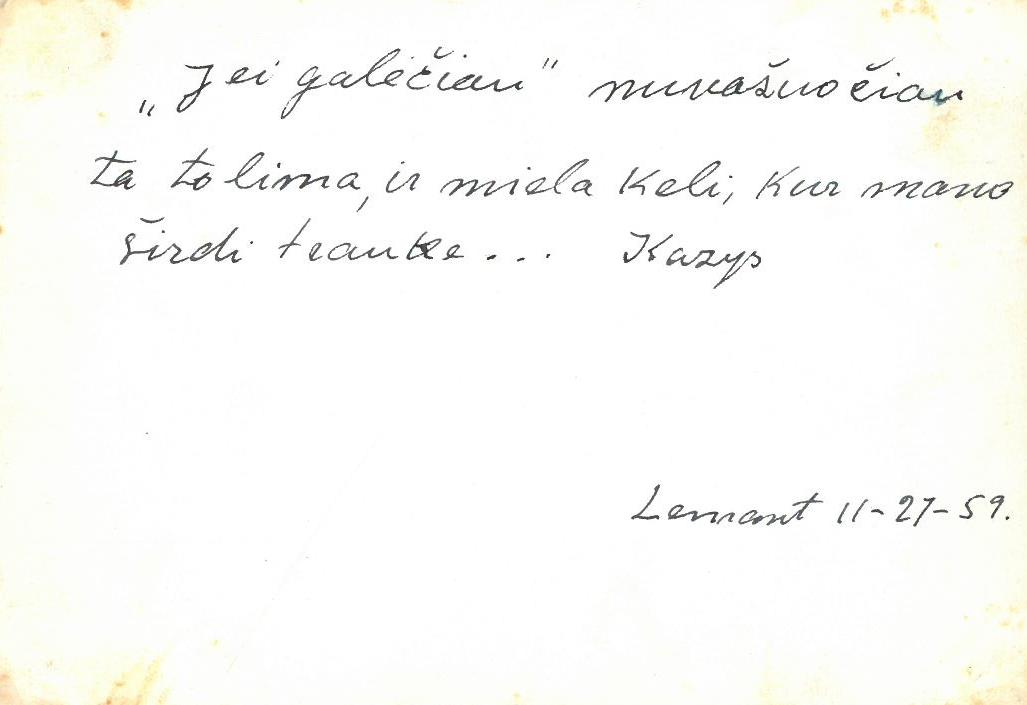 „Jei galėčiau" nuvašuočiau
ta tolima, ir miela keli, kur mano
širdi trauke... Kazys
Lemont 11-27-59.